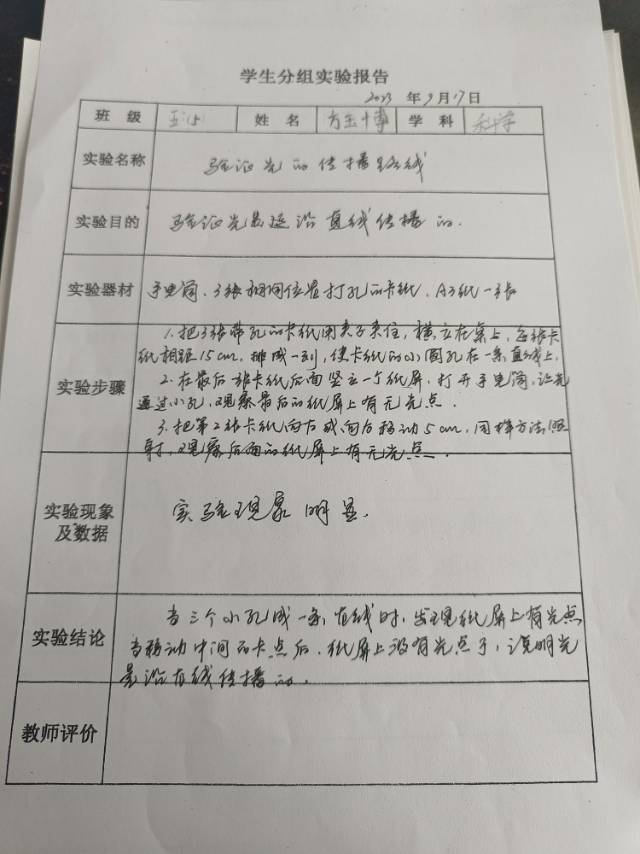 学生分组实验报告
2023 年9月17日
班 级 五(5) 姓 名 学 科 科学
实验名称 验证光的传播路线
实验目的 验证光是沿直线传播的.
实验器材 手电筒、3张相同位置打孔的卡纸、A3纸一张
1.把3张带孔的卡纸用夹子夹住,横立在桌上,每张卡
纸相距15cm,排成一列,使卡纸的小圆孔在一条直线上.
实验步骤
2.在最后 张卡纸后面竖立一个纸屏,打开手电筒,让光
通过小孔,观察最后的纸屏上有无光点.
3.把第2张卡纸向左或向右移动5cm,同样方法照
射,观察后面的纸屏上有无光点.
实验现象
及数据
实验现象明显.
实验结论
当三个小孔成一条直线时,发现纸屏上有光点
当移动中间的卡点后,纸屏上没有光点了,说明光
是沿直线传播的.
教师评价